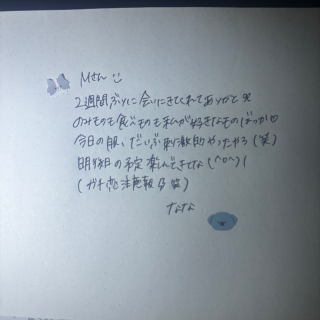 Mさん
2週間ぶりに会いにきてくれてありがと
のみものも食べものも私が好きなものばっか♡
今日の服、だいぶ刺激的やったやろ(笑)
明後日の予定楽しんできてな(^o^)!
注意報 笑)
なな